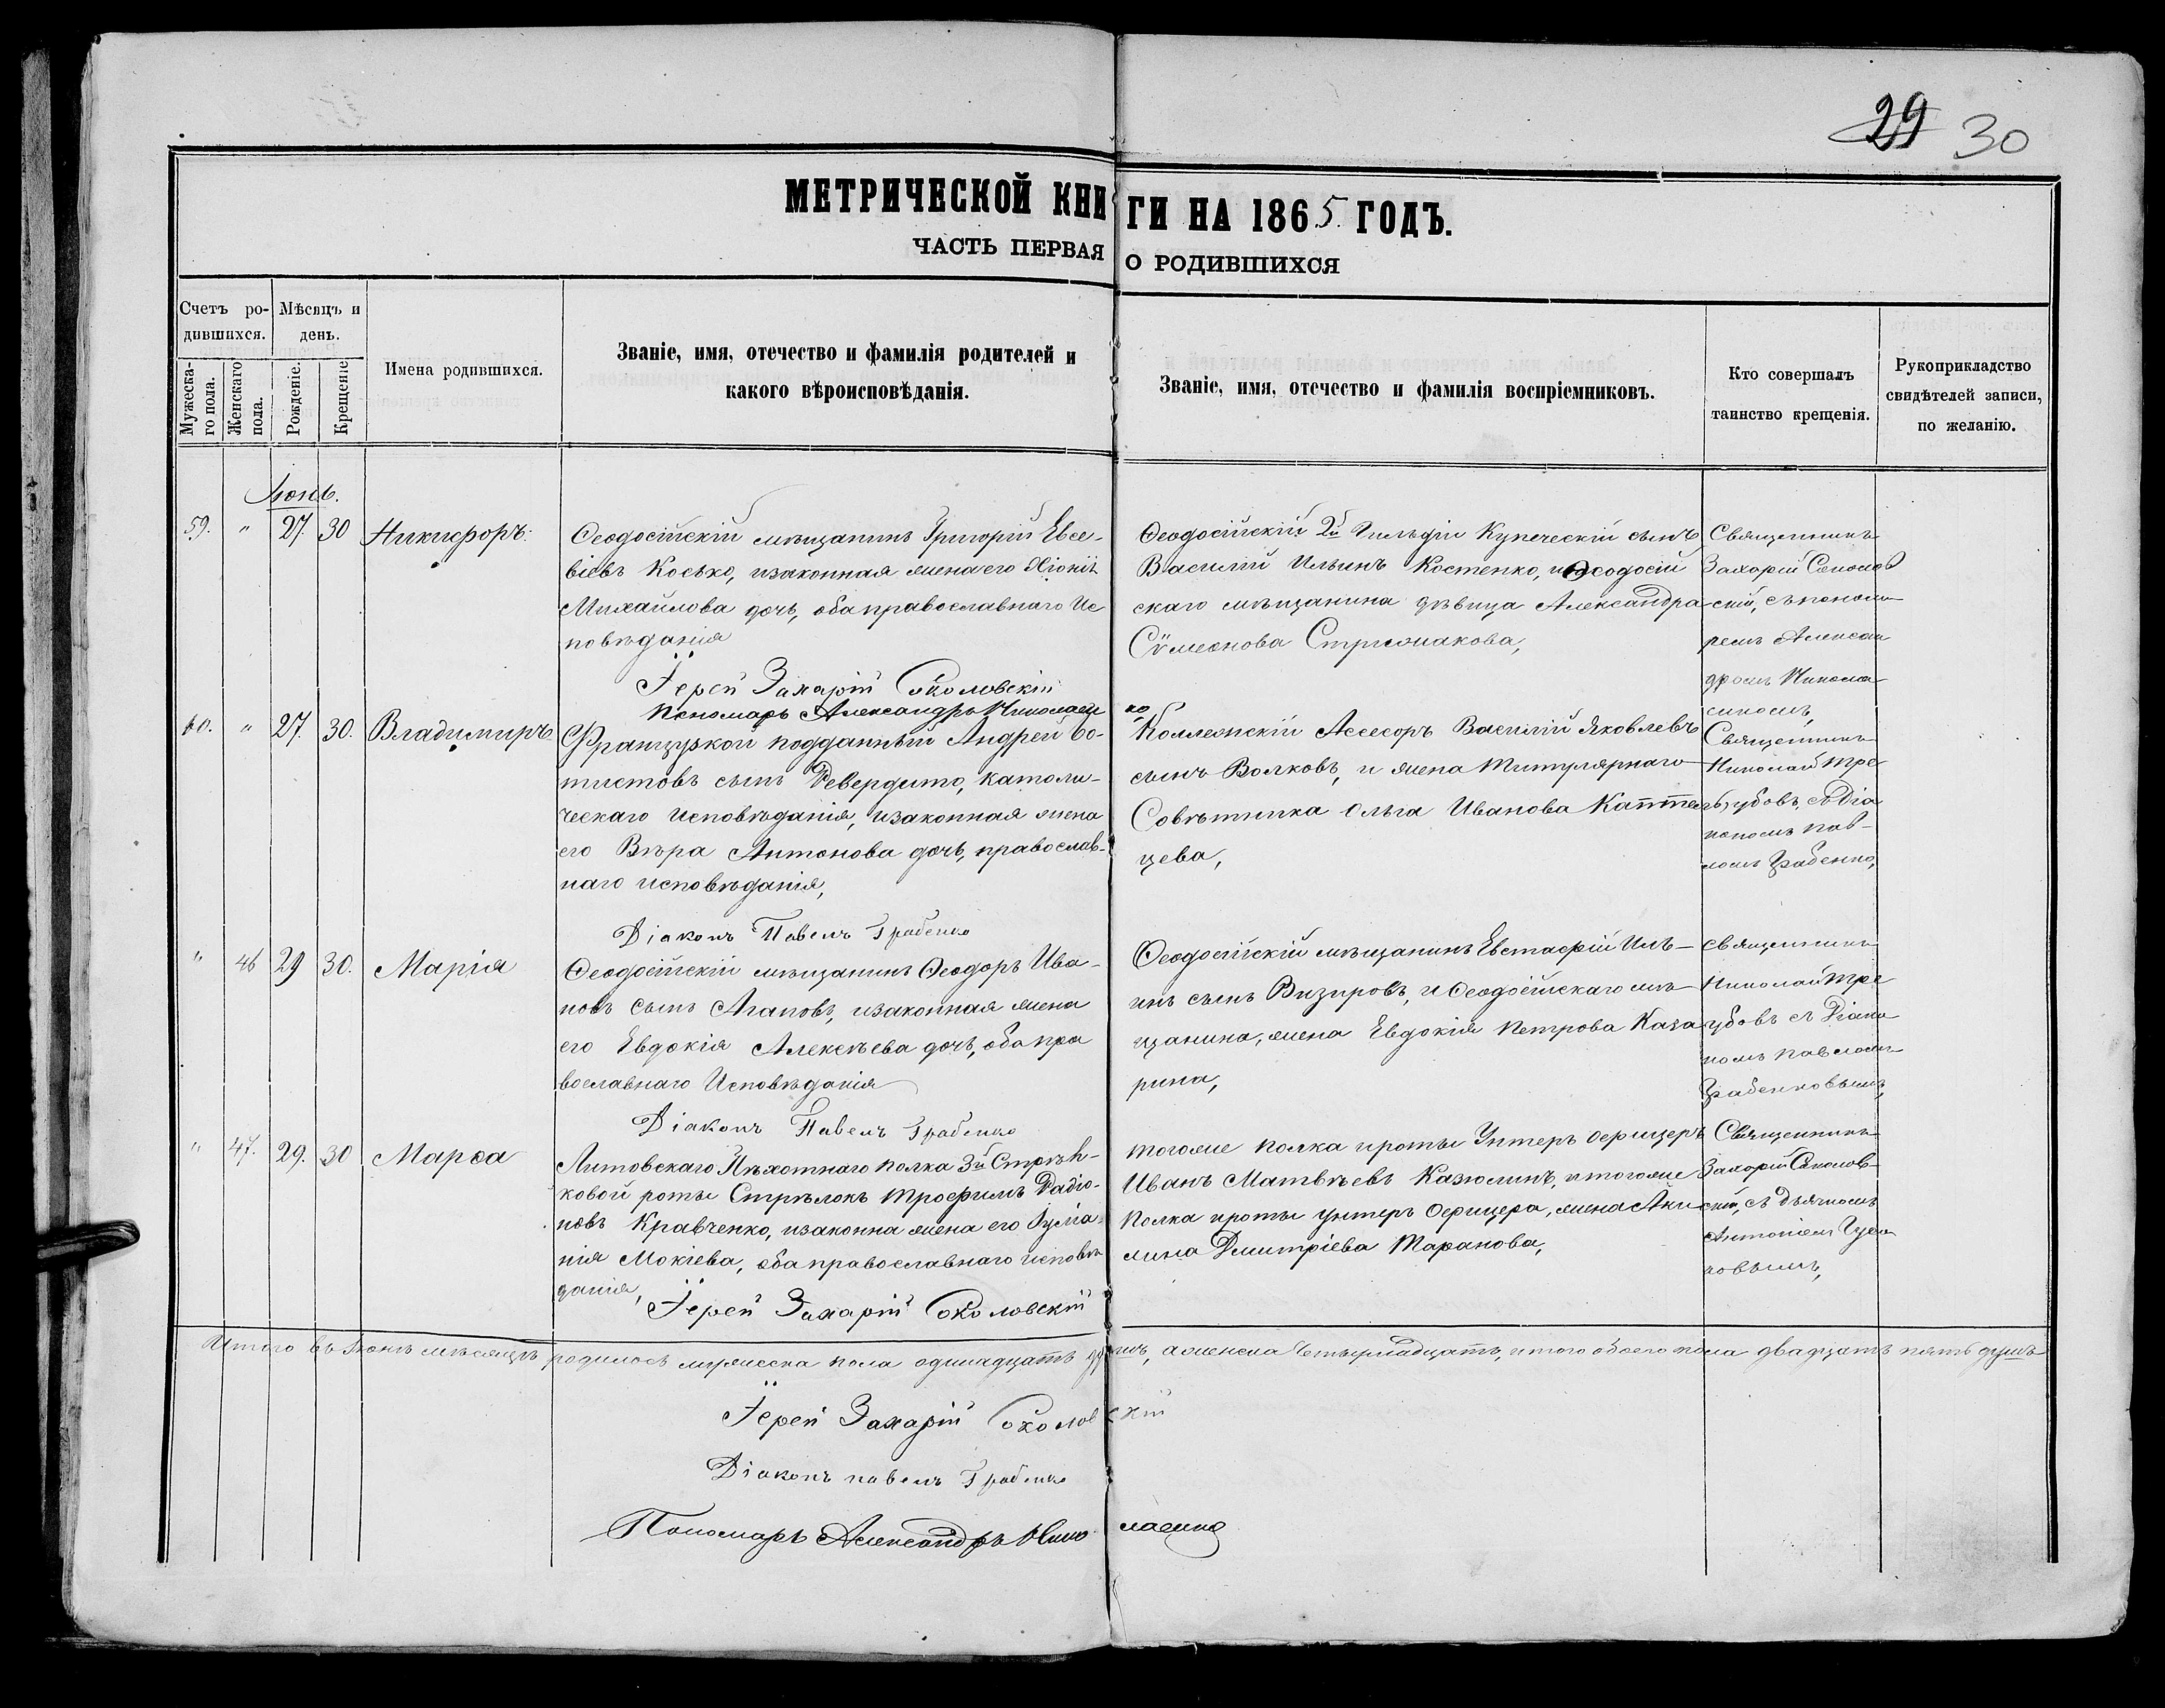 29 30
МЕТРИЧЕСКОЙ КНИГИ НА 1865 ГОДЪ.
ЧАСТЬ ПЕРВАЯ О РОДИВШИХСЯ
Счетъ родившихся.
Мужескаго пола.
Женскаго пола.
Мѣсяцъ и день.
Рожденіе.
Крещеніе
Имена родившихся.
Званіе, имя, отечество и фамилія родителей и
какого вѣроисповѣданія.
Званіе, имя, отечество и фамилія воспріемниковъ.
Кто совершалъ
таинство крещенія.
Рукоприкладство
свидѣтелей записи,
по желанію.
Іюнь.
59. " 27. 30 Никифоръ.
Ѳеодосійскій мѣщанинъ Григорій Евсе-
віевъ Косько, изаконная жена его Хіонія
Михайлова дочь, оба православнаго Ис
повѣданія
Іерей Захарій Соколовскій
Пономарь Александръ Николаенко
Ѳеодосійскій 2й Гильдіи Купеческій сынъ
Василій Ильинъ Костенко, и Ѳеодосій
скаго мѣщанина дѣвица Александра
Сѵмеонова Стрижакова,
Священникъ
Захарій Соколов
скій, съ понома
ремъ Алексан
дромъ Никола
енкомъ,
60. " 27. 30. Владимиръ
Французкой подданный Андрей Бо-
тистовъ сынъ Ревердито, католи-
ческаго исповѣданія, изаконная жена
его Вѣра Антонова дочь, православ-
наго исповѣданія,
Діаконъ Павелъ Грабенко
Коллежскій Асесоръ Василій Яковлевъ
сынъ Волковъ, и жена Титулярнаго
Совѣтника Ольга Иванова
цева,
Священникъ
Николай Тре
губовъ, съ Діа
кономъ Пав-
ломъ Грабенко,
" 46 29 30. Марія
Ѳеодосійскій мѣщанинъ Ѳеодоръ Ива-
новъ сынъ Агаповъ, изаконная жена
его Евдокія Алексѣева дочь, оба пра
вославнаго Исповѣданія
Діаконъ Павелъ Грабенко
Ѳеодосійскій мѣщанинъ Евстафій Иль-
инъ сынъ Визировъ, и Ѳеодосійскаго мѣ-
щанина, жена Евдокія Петрова Каза
рина,
Священникъ
Николай Тре
губовъ съ Діако
номъ Павломъ
Грабенковымъ,
" 47. 29. 30 Марѳа
Литовскаго Пѣхотнаго полка 3й Стрѣл-
ковой роты Стрѣлокъ Трофимъ Радіо-
новъ Кравченко, изаконна жена его
нія Мокіева, оба православнаго исповѣ
данія,
Іерей Захарій Соколовскій
тогоже полка ироты Унтеръ Офицеръ
Иванъ Матвѣевъ Казюлинъ, итогоже
Полка ироты унтеръ Офицера, жена Аки
лина Дмитріева Таранова,
Священникъ
Захарій Соколов-
скій, съ дьячкомъ
Антоніемъ
новымъ,
Итого въ Іюнѣ мѣсяцѣ родилось мужеска пола одинадцать душъ, аженска Четырнадцать, итого обоего пола двадцать пять душъ
Іерей Захарій Соколовскій
Діаконъ Павелъ Грабенко
Пономарь Александръ Николаенко